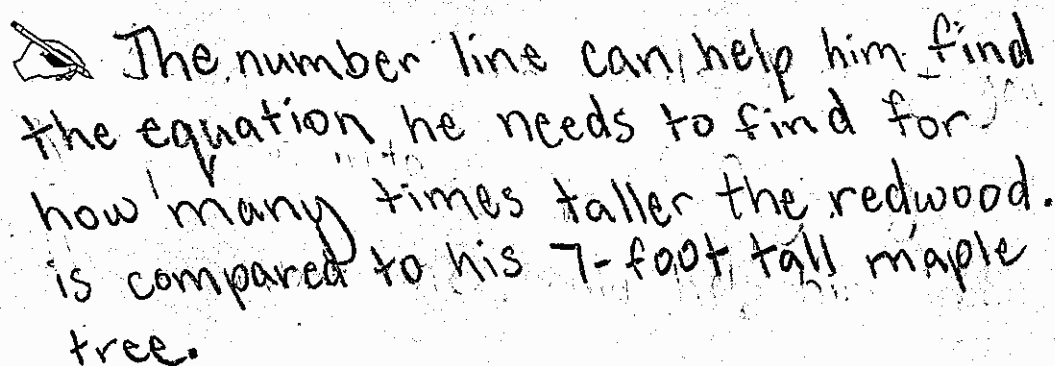 The number line can help him find
the equation he needs to find for
how many times taller the redwood.
is compared to his 7-foot tall maple
tree.